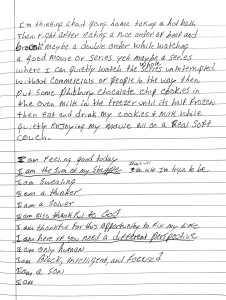 I'm thinking about going home taking a hot bath
then right after eating a nice order of beef and
broccoli maybe a double order while watching
a good movie or series yet maybe a series
where I can quietly watch the whole series uninterrupted
without commercials or people in the way then
put some Pillsbury chocolate chip cookies in
the oven milk in the freezer until its half frozen
then eat and drink my cookies + milk while
quietly enjoying my movie all on a Real Soft
couch.
I am feeling good today
I am the sum of my struggle
I am Sweating
I am a thinker
I am a Solver
I am also thankful to God
I am thankful for this opportunity to fix my life
I am here if you need a different perspective
I am only human
I am Black, Intelligent, and Focused
I am a son
I am